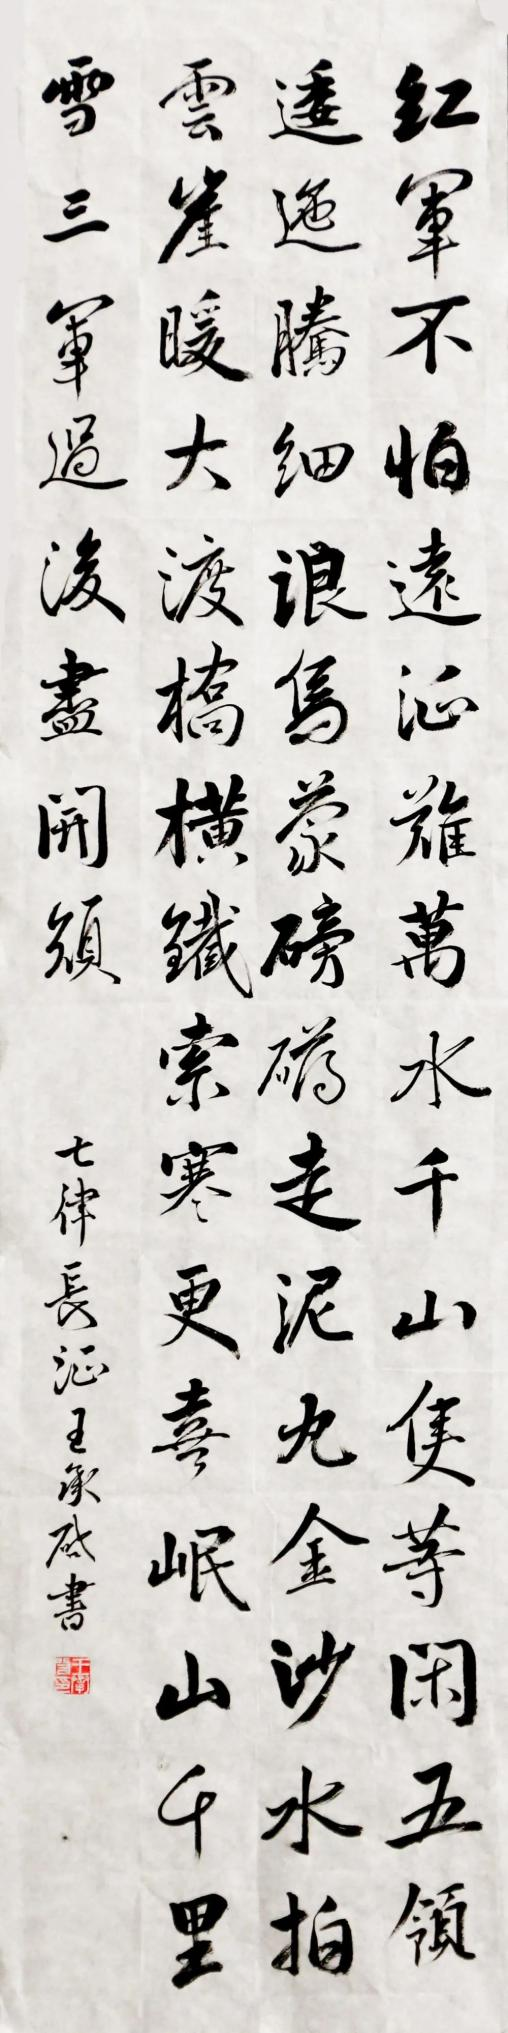 紅軍不怕遠征難萬水千山隻等閑五領
逶迤騰細浪烏蒙磅礴走泥丸金沙水拍
雲崖暖大渡橋橫鐵索寒更喜岷山千里
雪三軍過後盡開顏
七律長征王承啟書